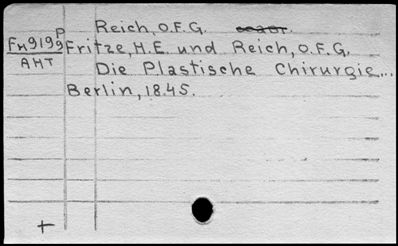 Reich, O.F.G.
P
FM9199 Fritze, H.E. und Reich, O.F.G.
AHT Die Plastische Chirurgie...
Berlin, 1845.